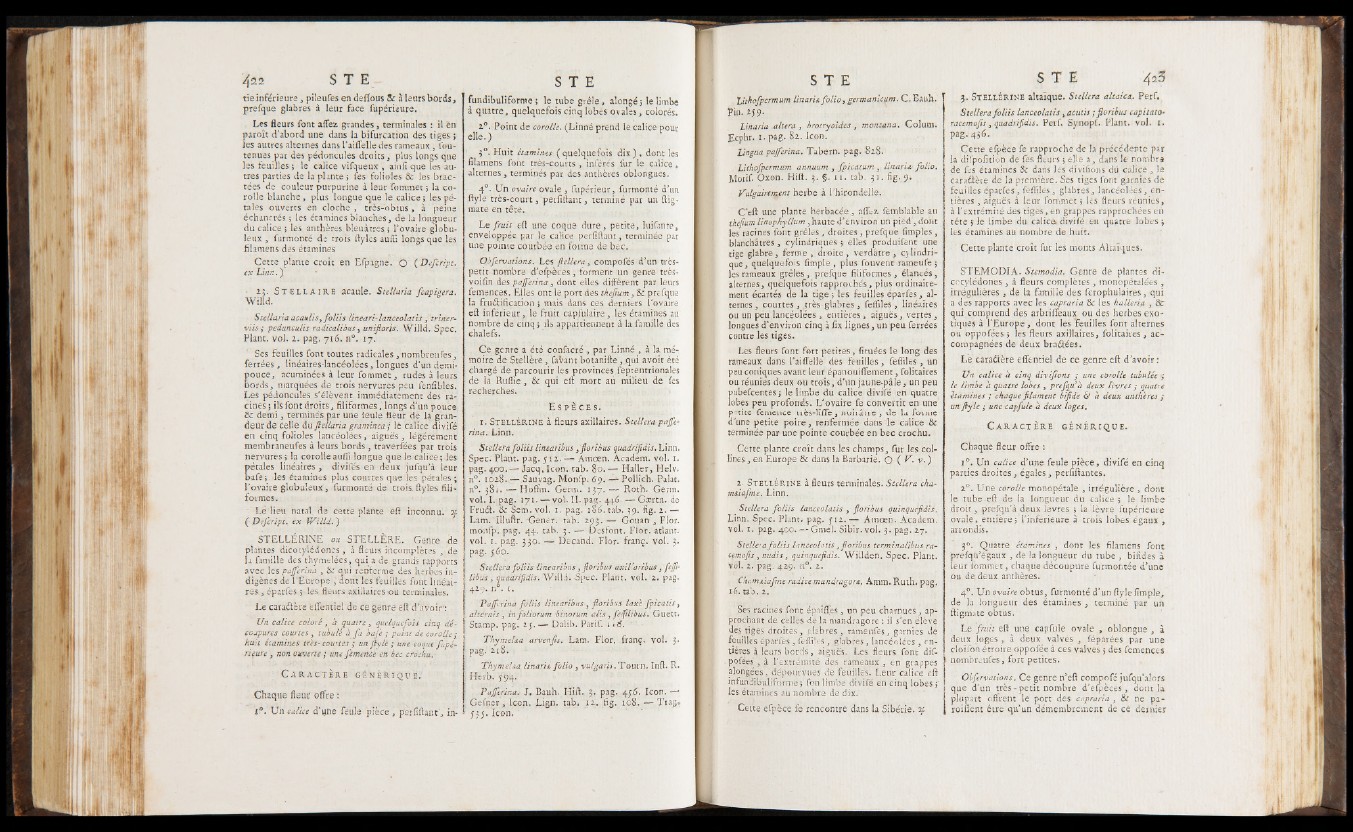 422 S T E
tie inférieure, pileuſes en deſſous & à leurs bords,
preſque glabres à leur face ſupérieure.
Les fleurs ſont aſſez grandes, terminales : il en
paroît d'abord une dans la bifurcation des tiges ;
les autres alternes dans l'aiſſelle des rameaux, ſou-
tenues par des pédoncules droits, plus longs que
les feuilles ; le calice viſqueux, ainſi que les au-
tres parties de la plante ; ſes folioles & les brac-
tées de couleur purpurine à leur ſommet ; la co-
rolle blanche, plus longue que le calice ; les pé-
tales ouverts en cloche, très-obtus, à peine
échancrés ; les étamines blanches, de la longueur
du calice ; les anthères bleuâtres ; l'ovaire globu-
leux, ſurmonté de trois ſtyles auſſi longs que les
filamens des étamines
Cette plante croît en Eſpagne. ☉ (Deſcript.
ex Linn.)
23. STELLAIRE acaule. Stellaria ſcapigera.
Willd.
Stellaria acaulis, foliis lineari-lanceolatis, triner-
viis ; pedunculis radicalibus, unifloris. Willd. Spec.
Plant. vol. 2. pag. 716. n°. 17.
Ses feuilles ſont toutes radicales, nombreuſes,
ſerrées, linéaires-lancéolées, longues d'un demi-
pouce, acuminées à leur ſommet, rudes à leurs
bords, marquées de trois nervures peu ſenſibles.
Les pédoncules s'élèvent immédiatement des ra-
cines ; ils ſont droits, filiformes, longs d'un pouce
& demi, terminés par une ſeule fleur de la gran-
deur de celle du ſtellaria graminea ; le calice diviſé
en cinq folioles lancéolées, aiguës, légérement
membraneuſes à leurs bords, traverſées par trois
nervures ; la corolle auſſi longue que le calice ; les
pétales linéaires, diviſés en deux juſqu'à leur
baſe ; les étamines plus courtes que les pétales ;
l'ovaire globuleux, ſurmonté de trois ſtyles fili-
formes.
Le lieu natal de cette plante eſt inconnu. ♃
(Deſcript. ex Willd.)
STELLÉRINE ou STELLÈRE. Genre de
plantes dicotylédones, à fleurs incomplètes, de
la famille des thymelées, qui a de grands rapports
avec les paſſerina, & qui renferme des herbes in-
digènes de l'Europe, dont les feuilles ſont linéai-
res, éparſes ; les fleurs axillaires ou terminales.
Le caractère eſſentiel de ce genre eſt d'avoir :
Un calice coloré, à quatre, quelquefois cinq dé-
coupures courtes, tubulé à ſa baſe ; point de corolle ;
huit étamines très-courtes ; un ſtyle ; une coque ſupé-
rieure, non ouverte ; une ſemence en bec crochu.
CARACTÈRE GÉNÉRIQUE.
Chaque fleur offre :
1°. Un calice d'une ſeule pièce, perſiſtant, in-
S T E
fundibuliforme ; le tube grêle, alongé ; le limbe
à quatre, quelquefois cinq lobes ovales, colorés.
2°. Point de corolle. (Linné prend le calice pour
elle.)
3°. Huit étamines (quelquefois dix), dont les
filamens ſont très-courts, inſérés ſur le calice,
alternes, terminés par des anthères oblongues.
4°. Un ovaire ovale, ſupérieur, ſurmonté d'un
ſtyle très-court, perſiſtant, terminé par un ſtig-
mate en tête.
Le fruit eſt une coque dure, petite, luiſante,
enveloppée par le calice perſiſtant, terminée par
une pointe courbée en forme de bec.
Obſervations. Les ſtellera, compoſés d'un très-
petit nombre d'eſpèces, forment un genre très-
voiſin des paſſerina, dont elles diffèrent par leurs
ſemences. Elles ont le port des theſium, & preſque
la fructification ; mais dans ces derniers l'ovaire
eſt inférieur, le fruit capſulaire, les étamines au
nombre de cinq ; ils appartiennent à la famille des
chalefs.
Ce genre a été conſacré, par Linné, à la mé-
moire de Stellère, ſavant botaniſte, qui avoit été
chargé de parcourir les provinces ſeptentrionales
de la Ruſſie, & qui eſt mort au milieu de ſes
recherches.
ESPÈCES.
1. STELLÉRINE à fleurs axillaires. Stellera paſſe-
rina. Linn.
Stellera foliis linearibus, floribus quadrifidis. Linn.
Spec. Plant. pag. 512. — Amœn. Academ. vol. 1.
pag. 400. — Jacq. Icon. tab. 80. — Haller, Helv.
n°. 1028. — Sauvag. Monſp. 69. — Pollich. Palat.
n°. 381. — Hoffm. Germ. 137. — Roth. Germ.
vol. I. pag. 171. — vol. II. pag. 446. — Gærtn. de
Fruct. & Sem. vol. 1. pag. 186. tab. 39. fig. 2. —
Lam. Illuſtr. Gener. tab. 293. — Gouan, Flor.
monſp. pag. 44. tab. 3. — Desfont. Flor. atlant.
vol. 1. pag. 330. — Décand. Flor. franç. vol. 3.
pag. 360.
Stellera foliis linearibus, floribus axillaribus, ſeſſi-
libus, quadrifidis. Willd. Spec. Plant. vol. 2. pag.
429. n°. 1.
Paſſerina foliis linearibus, floribus laxè ſpicatis,
alternis, in foliorum binorum alis, ſeſſilibus. Guett.
Stamp. pag. 25. — Dalib. Pariſ. 118.
Thymelæa arvenſis. Lam. Flor. franç. vol. 3.
pag. 218.
Thymelæa linariæ folio, vulgaris. Tourn. Inſt. R.
Herb. 594.
Paſſerina. J. Bauh. Hiſt. 3. pag. 456. Icon. —
Geſner, Icon. Lign. tab. 12. fig. 108. — Trag.
535. Icon.
S T E
Lithoſpermum linariæ folio, germanicum. C. Bauh.
Pin. 259.
Linaria altera, botryoides, montana. Colum.
Ecphr. 1. pag. 82. Icon.
Lingua paſſerina. Tabern. pag. 828.
Lithoſpermum annuum, ſpicatum, linariæ folio.
Moriſ. Oxon. Hiſt. 3. §. 11. tab. 31. fig. 9.
Vulgairement herbe à l'hirondelle.
C'eſt une plante herbacée, aſſez ſemblable au
theſium linophyllum, haute d'environ un pied, dont
les racines ſont grêles, droites, preſque ſimples,
blanchâtres, cylindriques ; elles produiſent une
tige glabre, ferme, droite, verdâtre, cylindri-
que, quelquefois ſimple, plus ſouvent rameuſe ;
les rameaux grêles, preſque filiformes, élancés,
alternes, quelquefois rapprochés, plus ordinaire-
ment écartés de la tige ; les feuilles éparſes, al-
ternes, courtes, très glabres, ſeſſiles, linéaires
ou un peu lancéolées, entières, aiguës, vertes,
longues d'environ cinq à ſix lignes, un peu ſerrées
contre les tiges.
Les fleurs ſont fort petites, ſituées le long des
rameaux dans l'aiſſelle des feuilles, ſeſſiles, un
peu coniques avant leur épanouiſſement, ſolitaires
ou réunies deux ou trois, d'un jaune-pâle, un peu
pubeſcentes ; le limbe du calice diviſé en quatre
lobes peu profonds. L'ovaire ſe convertit en une
petite ſemence très-liſſe, noirâtre, de la forme
d'une petite poire, renfermée dans le calice &
terminée par une pointe courbée en bec crochu.
Cette plante croît dans les champs, ſur les col-
lines, en Europe & dans la Barbarie. ☉ (V. v.)
2. STELLÉRINE à fleurs terminales. Stellera cha-
mæjaſme. Linn.
Stellera foliis lanceolatis, floribus quinquefidis.
Linn. Spec. Plant. pag. 512. — Amœn. Academ.
vol. 1. pag. 400. — Gmel. Sibir. vol. 3. pag. 27.
Stellera foliis lanceolatis, floribus terminalibus ra-
cemoſis, nudis, quinquefidis. Willden. Spec. Plant.
vol. 2. pag. 429. n°. 2.
Chamæjaſme radice mandragoræ. Amm. Ruth. pag.
16. tab. 2.
Ses racines ſont épaiſſes, un peu charnues, ap-
prochant de celles de la mandragore : il s'en élève
des tiges droites, glabres, rameuſes, garnies de
feuilles éparſes, ſeſſiles, glabres, lancéolées, en-
tières à leurs bords, aiguës. Les fleurs ſont diſ-
poſées, à l'extrémité des rameaux, en grappes
alongées, dépourvues de feuilles. Leur calice eſt
infundibuliforme ; ſon limbe diviſé en cinq lobes ;
les étamines au nombre de dix.
Cette eſpèce ſe rencontre dans la Sibérie. ♃
S T E 423
3. STELLÉRINE altaïque. Stellera altaica. Perſ.
Stellera foliis lanceolatis, acutis ; floribus capitato-
racemoſis, quadrifidis. Perſ. Synopſ. Plant. vol. 1.
pag. 436.
Cette eſpèce ſe rapproche de la précédente par
la diſpoſition de ſes fleurs ; elle a, dans le nombre
de ſes étamines & dans les diviſions du calice, le
caractère de la première. Ses tiges ſont garnies de
feuilles éparſes, ſeſſiles, glabres, lancéolées, en-
tières, aiguës à leur ſommet ; les fleurs réunies,
à l'extrémité des tiges, en grappes rapprochées en
tête ; le limbe du calice diviſé en quatre lobes ;
les étamines au nombre de huit.
Cette plante croît ſur les monts Altaïques.
STEMODIA. Stemodia. Genre de plantes di-
cotylédones, à fleurs complètes, monopétalées,
irrégulières, de la famille des ſcrophulaires, qui
a des rapports avec les capraria & les halleria, &
qui comprend des arbriſſeaux ou des herbes exo-
tiques à l'Europe, dont les feuilles ſont alternes
ou oppoſées ; les fleurs axillaires, ſolitaires, ac-
compagnées de deux bractées.
Le caractère eſſentiel de ce genre eſt d'avoir :
Un calice à cinq diviſions ; une corolle tubulée ;
le limbe à quatre lobes, preſqu'à deux lèvres ; quatre
étamines ; chaque filament bifide & à deux anthères ;
un ſtyle ; une capſule à deux loges.
CARACTÈRE GÉNÉRIQUE.
Chaque fleur offre :
1°. Un calice d'une ſeule pièce, diviſé en cinq
parties droites, égales, perſiſtantes.
2°. Une corolle monopétale, irrégulière, dont
le tube eſt de la longueur du calice ; le limbe
droit, preſqu'à deux lèvres ; la lèvre ſupérieure
ovale, entière ; l'inférieure à trois lobes égaux,
arrondis.
3°. Quatre étamines, dont les filamens ſont
preſqu'égaux, de la longueur du tube, bifides à
leur ſommet, chaque découpure ſurmontée d'une
ou de deux anthères.
4°. Un ovaire obtus, ſurmonté d'un ſtyle ſimple,
de la longueur des étamines, terminé par un
ſtigmate obtus.
Le fruit eſt une capſule ovale, oblongue, à
deux loges, à deux valves, ſéparées par une
cloiſon étroite oppoſée à ces valves ; des ſemences
nombreuſes, fort petites.
Obſervations. Ce genre n'eſt compoſé juſqu'alors
que d'un très-petit nombre d'eſpèces, dont la
plupart offrent le port des capraria, & ne pa-
roiſſent être qu'un démembrement de ce dernier